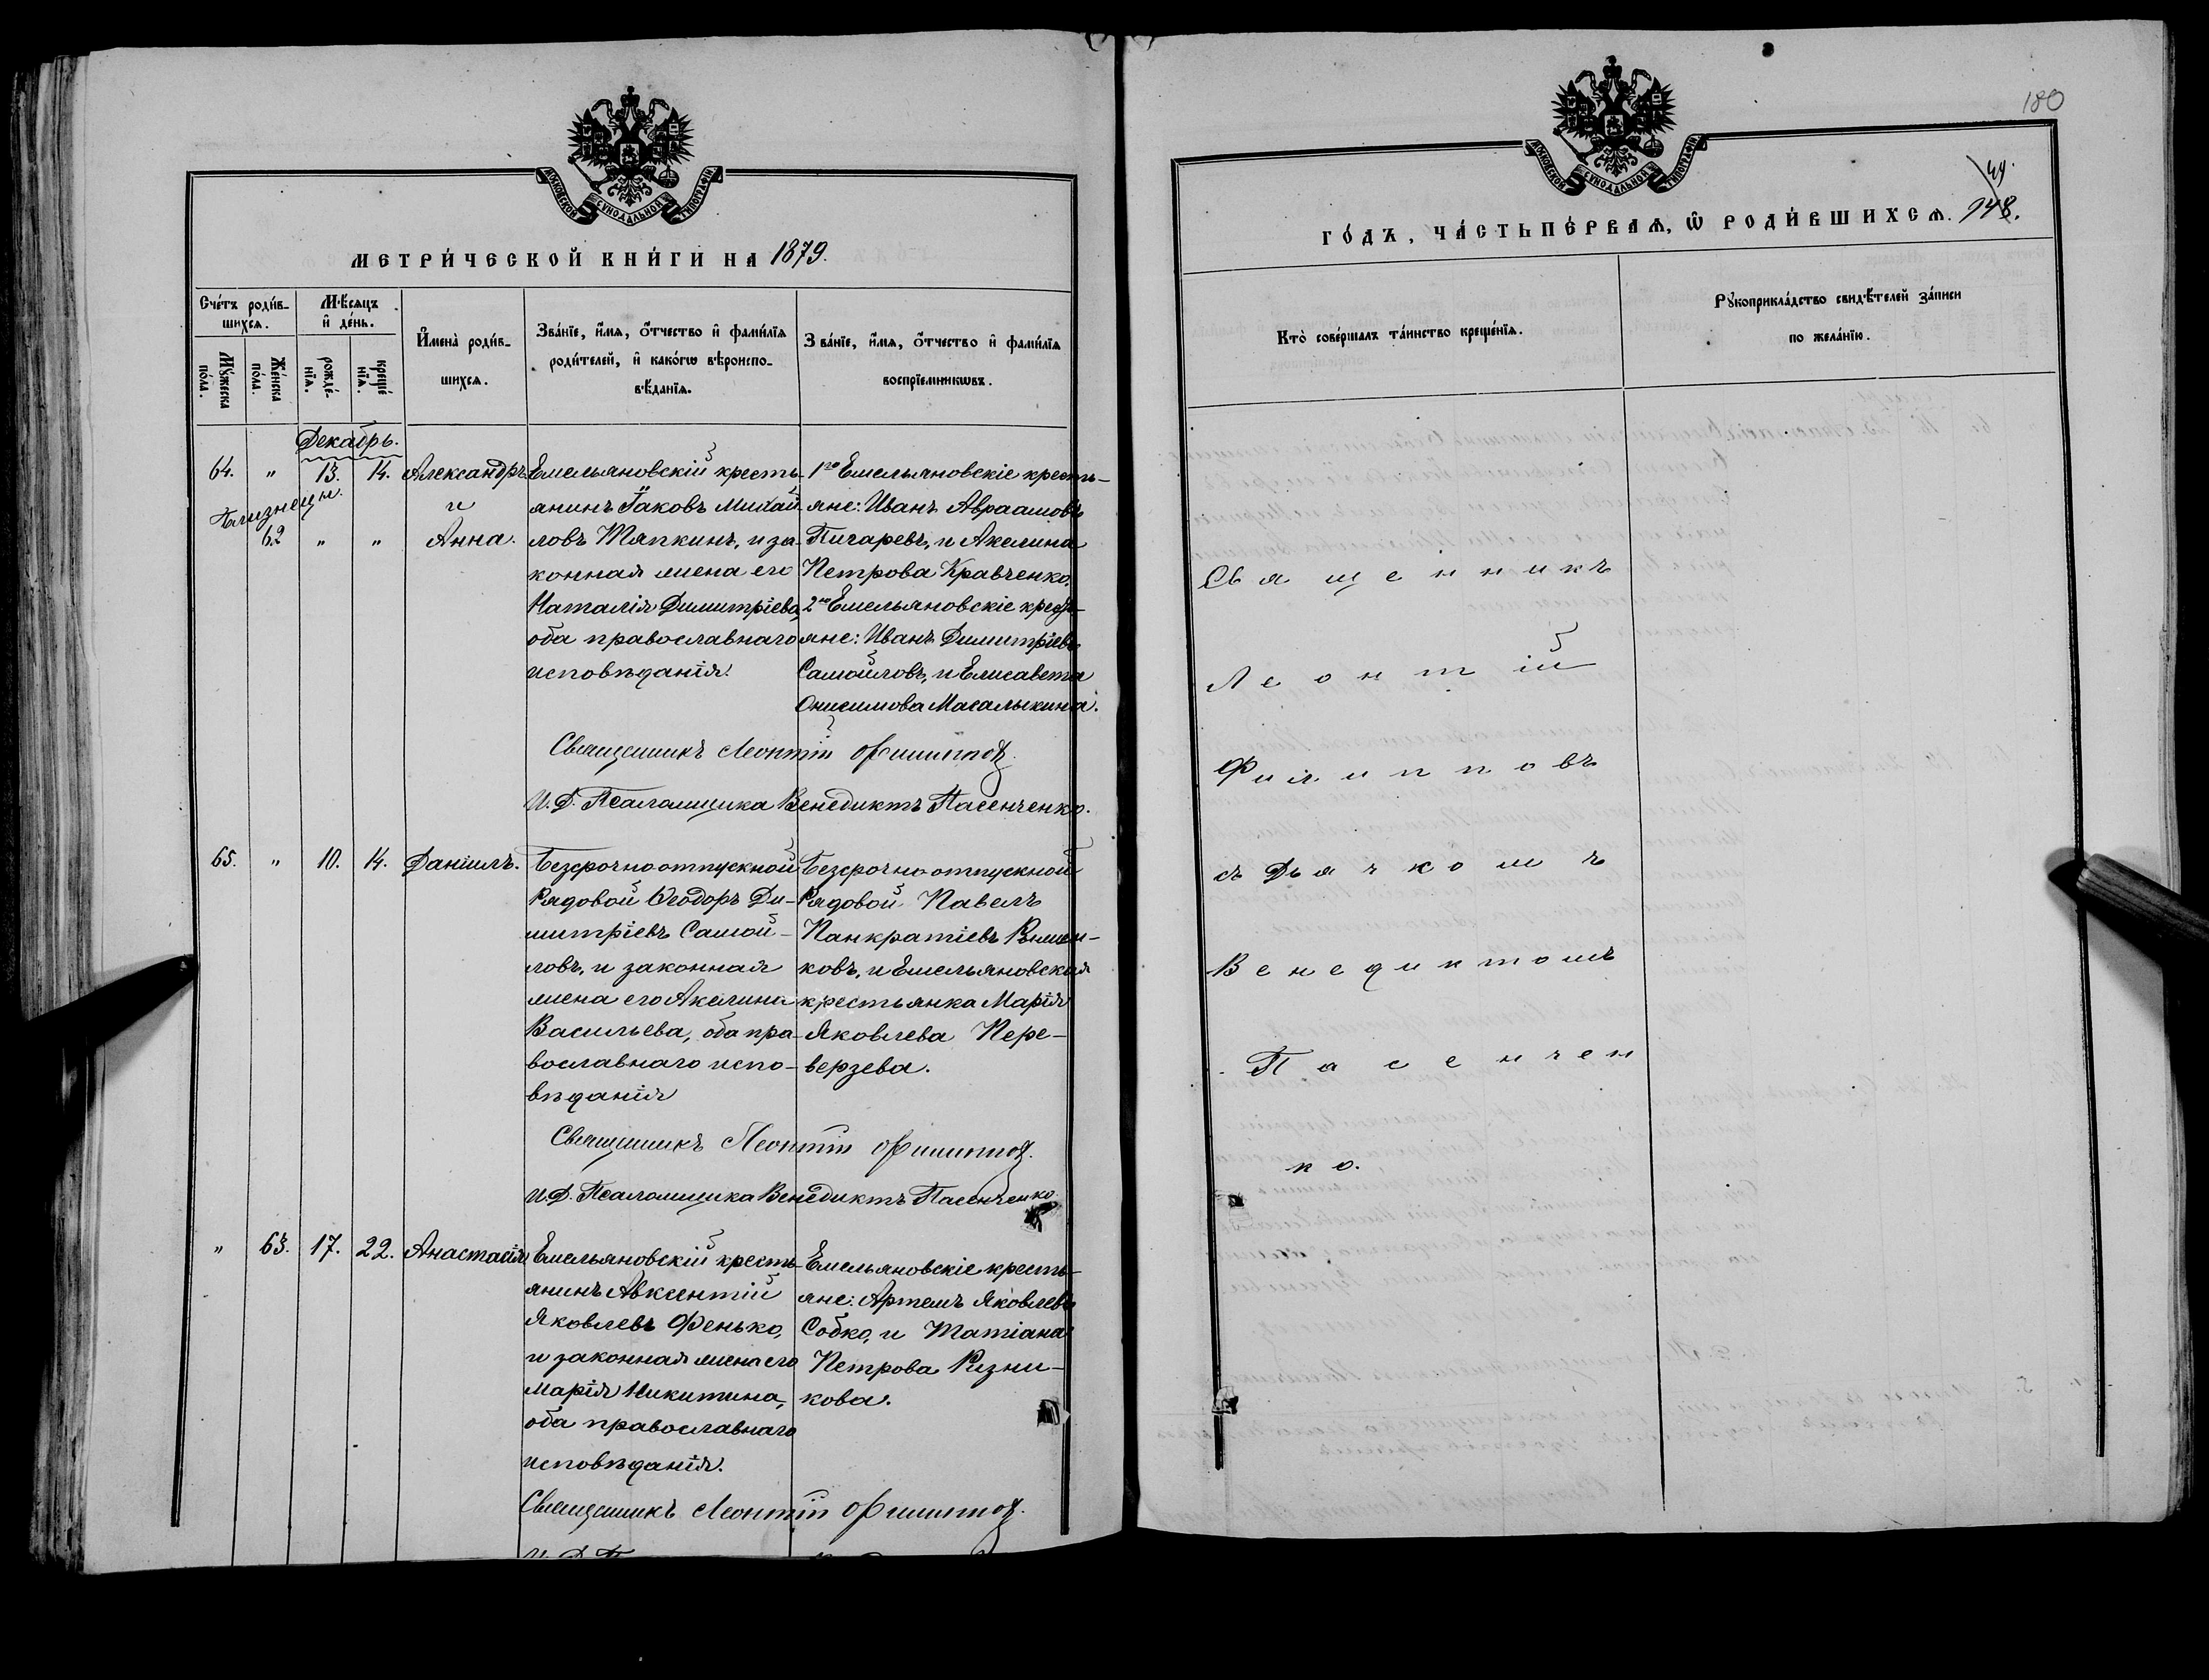 МОСКОВСКОЙ СѴНОДАЛЬНОЙ ТИПОГРАФІИ
МЕТРИ́ЧЕСКОЙ КНИ́ГИ НА 1879.
Сче́тъ роди́в-
шихсѧ.
Мꙋ́жеска
по́ла.
Же́нска
по́ла.
Мѣ́сѧцъ
и҆ де́нь.
рожде́-
нїѧ.
креще́
нїѧ.
И҆мена̀ роди́в-
шихсѧ.
Зва́нїе, и҆́мѧ, ѻ҆́тчество и҆ фами́лїѧ
роди́телей, и҆ како́гѡ вѣроиспо-
вѣ́данїѧ.
Зва́нїе, и҆́мѧ, ѻ҆́тчество и҆ фами́лїѧ
воспрїе́мникѡвъ.
Декабрь.
64. " 13. 14. Александръ
Близнецы.
и
62 " " Анна.
Емельяновскій кресть-
янинъ Іаковъ Михай-
ловъ Тяпкинъ, и за-
конная жена его
Наталія Димитріева,
оба православнаго
исповѣданія.
1го Емельяновскіе кресть-
яне: Иванъ Авраамовъ
Пичаревъ, и Акелина
Петрова Кравченко.
2го Емельяновскіе кресть-
яне: Иванъ Димитріевъ
Самойловъ, и Елисавета
Онисимова Масалыкина.
Священникъ Леонтій Филипповъ.
И. Д. Псаломщика Венедиктъ Пасенченко.
65. " 10. 14. Даніилъ.
Безсрочноотпускной
Рядовой Ѳеодоръ Ди-
митріевъ Самой-
ловъ, и законная
жена его Акелина
Васильева, оба пра-
вославнаго испо-
вѣданія
Безсрочноотпускной
Рядовой Павелъ
Панкратіевъ
ковъ, и Емельяновская
крестьянка Марія
Яковлева Пере-
верзева.
Священникъ Леонтій Филипповъ.
И. Д. Псаломщика Венедиктъ Пасенченко
" 63. 17. 22. Анастасія
Емельяновскій кресть-
янинъ Авксентій
Яковлевъ Фенько,
и законная жена его
Марія Никитина,
оба православнаго
исповѣданія.
Емельяновскіе кресть-
яне: Артемъ Яковлевъ
Собко, и Татіана
Петрова Ризни-
кова.
Священникъ Леонтій Филипповъ.
180
МОСКОВСКОЙ СѴНОДАЛЬНОЙ ТИПОГРАФІИ
ГО́ДЪ, ЧА́СТЬ ПЕ́РВАѦ, Ѽ РОДИ́ВШИХСѦ. 148.
Кто̀ соверша́лъ та́инство креще́нїѧ.
Рꙋкоприкла́дство свидѣ́телей за́писи
по жела́нїю.
Священникъ
Леонтій
Филипповъ
съ Дьячкомъ
Венедиктомъ
Пасенчен
ко.